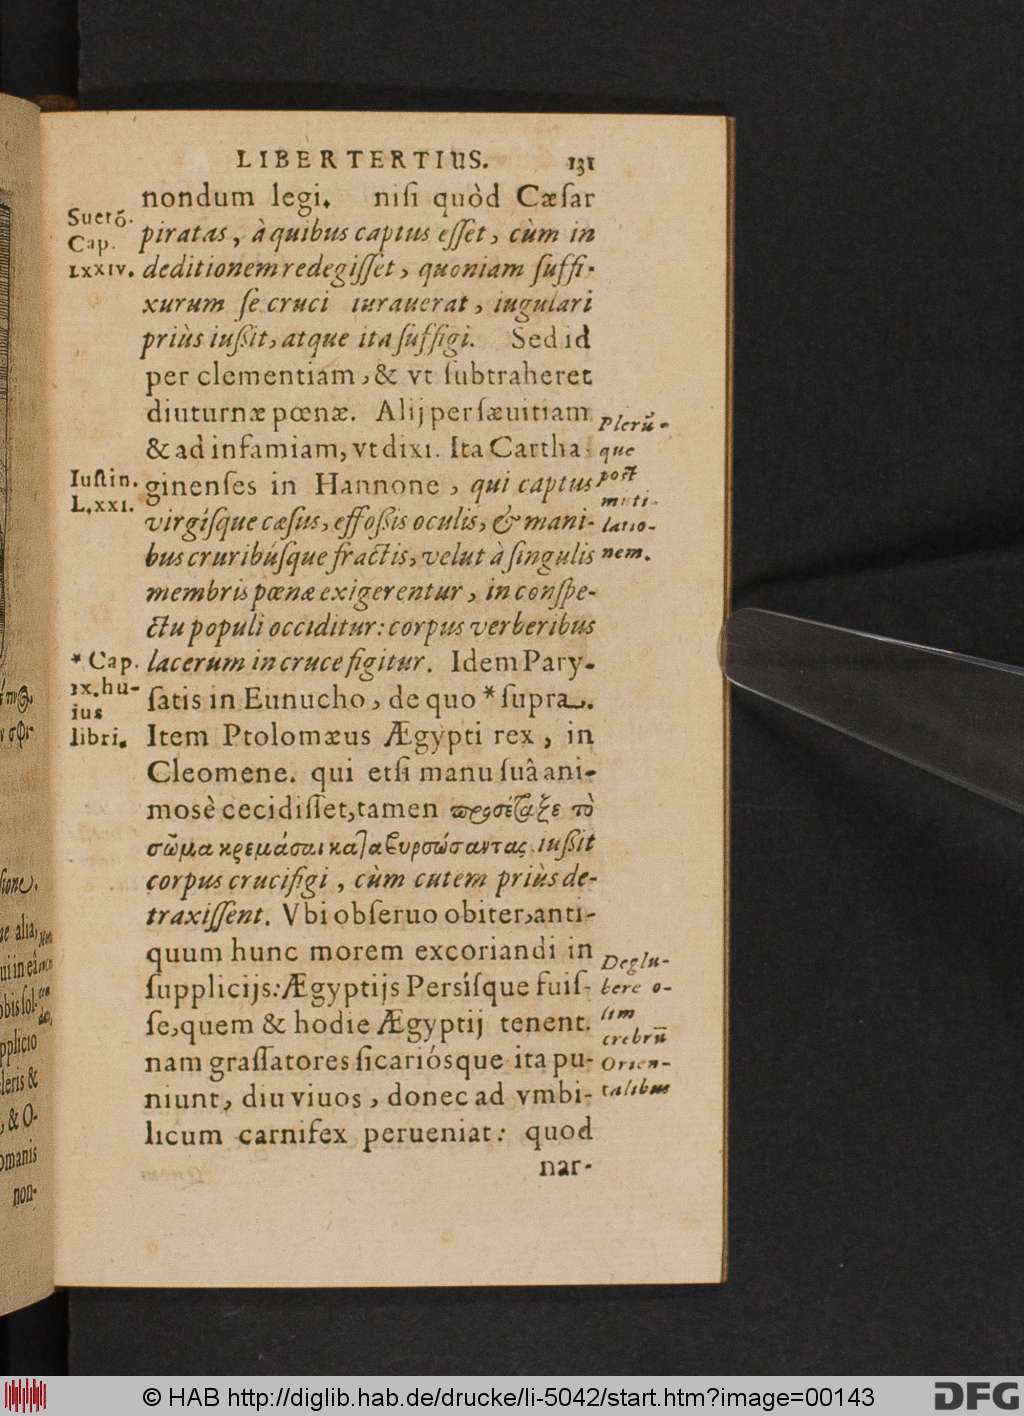 LIBER TERTIUS. 131
nondum legi. nisi quòd Cæsar
piratas, à quibus captus esset, cùm in
deditionem redegisset, quoniam suffi-
xurum se cruci iurauerat, iugulari
priùs iußit, atque ita suffigi. Sed id
per clementiam, & vt subtraheret
diuturnæ pœnæ. Alij per sæuitiam
& ad infamiam, vt dixi. Ita Cartha-
ginenses in Hannone, qui captus
virgísque cæsus, effoßis oculis, & mani-
bus cruribúsque fractis, velut à singulis
membris pœnæ exigerentur, in conspe-
ctu populi occiditur: corpus verberibus
lacerum in cruce figitur. Idem Pary-
satis in Eunucho, de quo * supra.
Item Ptolomæus Ægypti rex, in
Cleomene. qui etsi manu suâ ani-
mosè cecidisset, tamen προσέταξε τὸ
σῶμα κρεμάσαι καταβυρσώσαντας. iußit
corpus crucifigi, cùm cutem priùs de-
traxissent. Vbi obseruo obiter, anti-
quum hunc morem excoriandi in
supplicijs: Ægyptijs Persísque fuis-
se, quem & hodie Ægyptij tenent.
nam grassatores sicariósque ita pu-
niunt, diu viuos, donec ad vmbi-
licum carnifex perueniat: quod
nar-
Suetō.
Cap.
LXXIV.
Iustin.
L. XXI.
* Cap.
IX. hu-
ius
libri.
Plerū-
que
post
muti-
latio-
nem.
Deglu-
bere o-
lim
crebrū
Orien-
talibus
sione.
alia,
ui in eâ
obis sol-
pplicio
leris &
, & O-
omanis
non-
© HAB http://diglib.hab.de/drucke/li-5042/start.htm?image=00143
DFG